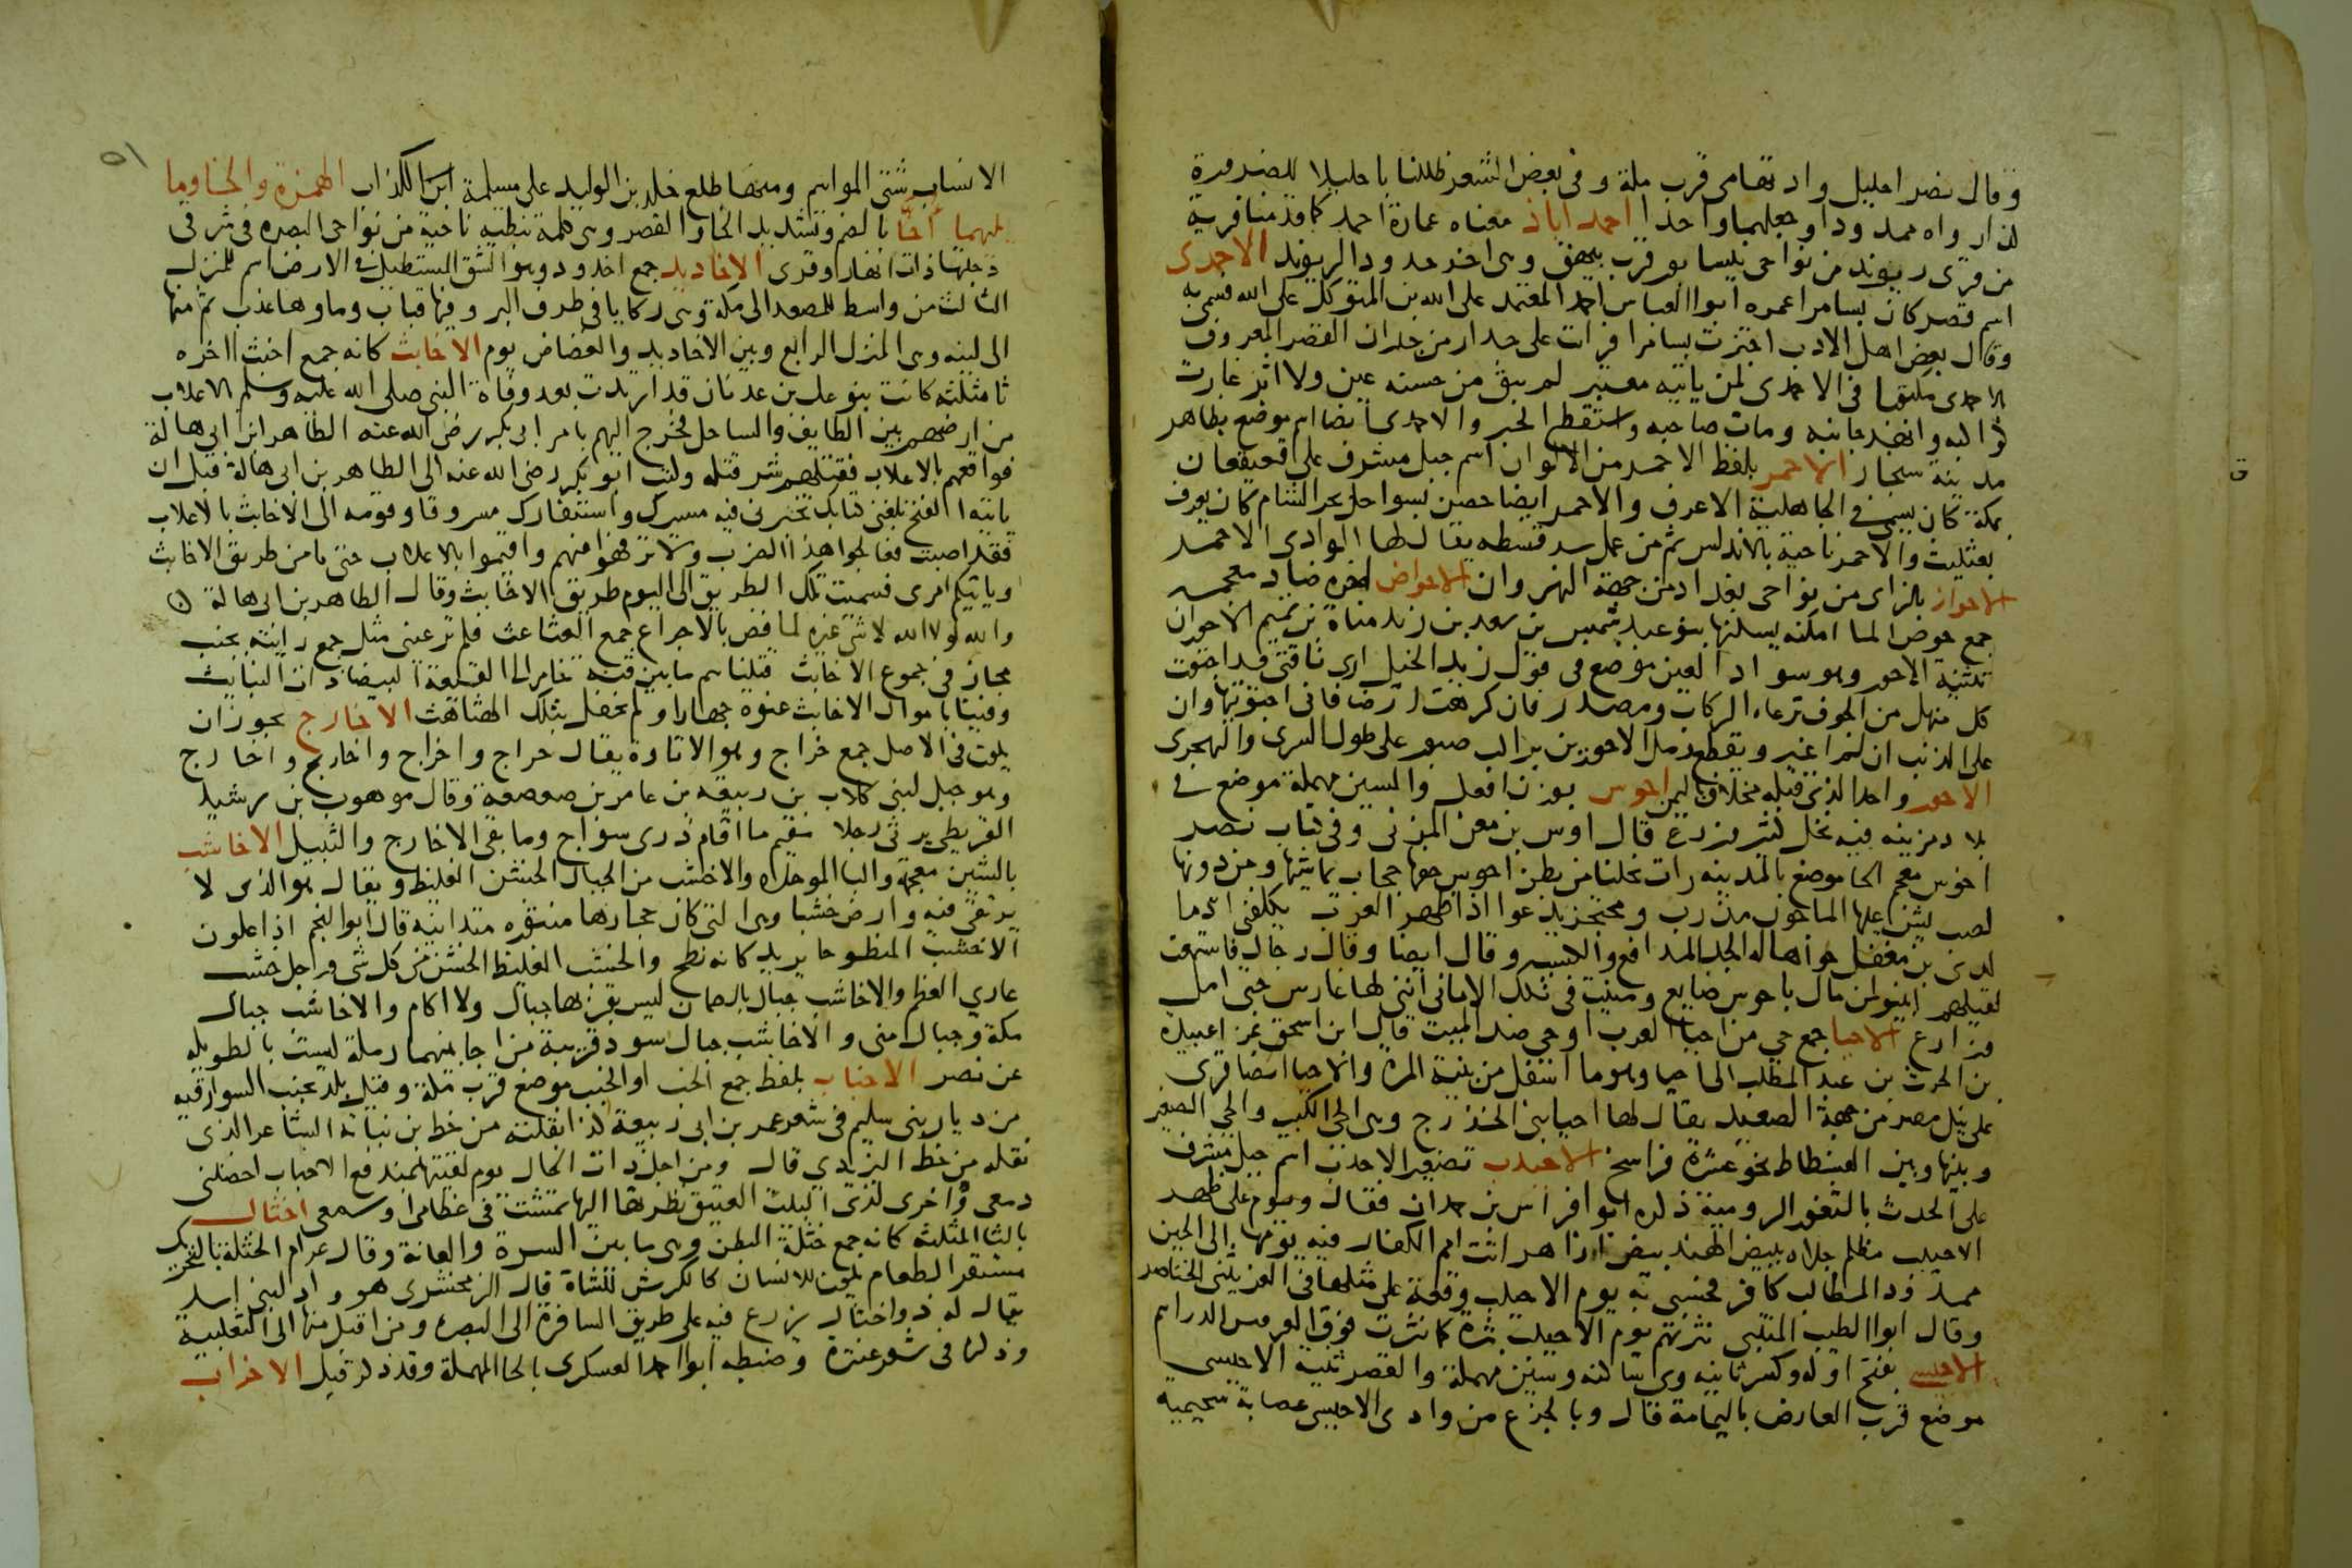 وقال نصر احليل واد تهامى قرب مكة وفى بعض الشعر ظللنا باحليلا للضرورة
لذا رواه ممدودا وجعلهما واحدا احمد اباذ معناه عمارة احمد كما قدمنا قرية
من قرى ريوند من نواحى نيسابور قرب بيهق وهى اخر حدود الريوند الاحمدى
اسم قصر كان بسامرا عمره ابو العباس احمد المعتمد على الله بن المتوكل على الله فسمى به
وقال بعض اهل الادب اجتزت بسامرا فرات على جدار من جدران القصر المعروف
بالاحمدى مكتوبا فى الاحمدى لمن ياتيه معتبر لم يبق من حسنه عين ولا اثر غارت
كواكبه وانهد جانبه ومات صاحبه واستفظع الخبر والاحمدى ايضا اسم موضع بظاهر
مدينة سنجار الاحمر بلفظ الاحمر من الالوان اسم جبل مشرف على قعيقعان
بمكة كان يسمى فى الجاهلية الاعرف والاحمر ايضا حصن بسواحل بحر الشام كان يعرف
بعثليث والاحمر ناحية بالاندلس ثم من عمل سرقسطه يقال لها الوادى الاحمر
الاحواز بالزاى من نواحى بغداد من جهة النهروان الاحواض اخره ضاد معجمه
جمع حوض الما امكنه يسكنها بنو عبد شمس بن سعد بن زيد مناة بن تميم الاحوران
تثنية الاحور وهو سواد العين موضع فى قول زيد الخيل ارى ناقتى قد اجتوت
كل منهل من الجوف ترعاه الركاب ومصدر فان كرهت ارضا فانى اجتويتها وان
على الذنب ان لم اغير وتقطع رمل الاحورين براكب صبور على طول السرى والتهجرى
الاحور واحد الذى قبله مخلاف باليمن احوس بوزن افعل والسين مهملة موضع فى
بلاد مزينه فيه نخل كثير وزرع قال اوس بن معن المزنى وفى كتاب نصر
اخوس معجم الخا موضع بالمدينه رات نخلنا من بطن احوس حفها حجاب يماشيها ومن دونها
لصب يشن عليها الما جون مدرب ومحتجز يدعوا اذا ظهر الغرب تكلفنى ادما
لدى بن مغفل حواها له الجد المدافع والكسب وقال ايضا وقال رجال فاستمعت
لقيلهم ابينوا لمن مال باحوس ضايع ومنيت فى تلك الامانى اننى لها غارس حتى امل
وزارع الاحيا جمع حى من احيا العرب او حى ضد الميت قال ابن اسحق غزا عبيدة
بن الحرث بن عبد المطلب الى احيا وهو ما اسفل من ثنية المرة والاحيا ايضا قرى
على نيل مصر من جهة الصعيد يقال لها احيا بنى الخزرج وهى الحى الكبير والحى الصغير
وبينها وبين الفسطاط نحو عشرة فراسخ الاحيدب تصغير الاحدب اسم جبل مشرف
على الحدث بالثغور الرومية ذكره ابو افراس بن حمدان فقال ويوم على ظهر
الاحيدب مظلم جلاه ببيض الهند بيض ازاهر اتت امم الكفار فيه يومها الى الحين
ممدود المطالب كافر فحسبى به يوم الاحيدب وقعة على مثلها فى العز يثنى الخناصر
وقال ابو الطيب المتنبى نثرتهم يوم الاحيدب نثرة كما نثرت فوق العروس الدراهم
الاحيسى بفتح اوله وكسر ثانيه ويا ساكنه وسين مهملة والقصر ثنية الاحيسى
موضع قرب العارض باليمامة قال وبالجزع من وادى الاحيسى عصابة سحيمية
الانساب شتى المواسم ومنها طلع خلد بن الوليد على مسيلمة الكذاب الهمزة والخا وما
يليهما أخّا بالضم وتشديد الخا والقصر وهى كلمة نبطيه ناحية من نواحى البصره فى شرقى
دجلتها ذات انهار وقرى الاخاديد جمع اخدود وهو الشق المستطيل فى الارض اسم للمنزل
الثالث من واسط للمصعد الى مكة وهى ركايا فى طرف البر وفيها قباب وماوها عذب ثم منها
الى لينه وهى المنزل الرابع وبين الاخاديد والغضاض يوم الاخابث كانه جمع اخبث اخره
ثا مثلثه كانت بنو عك بن عدنان قد ارتدت بعد وفاة النبى صلى الله عليه وسلم بالاعلاب
من ارضهم بين الطايف والساحل فخرج اليهم بامر ابى بكر رضى الله عنه الطاهر بن ابى هالة
فواقعهم بالاعلاب فقتلهم شر قتله وكتب ابو بكر رضى الله عنه الى الطاهر بن ابى هالة قبل ان
ياتيه الفتح بلغنى كتابك تخبرنى فيه مسيرك واستنفارك مسروقا وقومه الى الاخابث بالاعلاب
فقد اصبت فعالجوا هذا الضرب ولا ترفهوا عنهم واقيموا بالاعلاب حتى يامن طريق الاخابث
وياتيكم امرى فسميت تلك الطريق الى اليوم طريق الاخابث وقال الطاهر بن ابى هالة
والله لولا الله لا شئ غيره لما فض بالاجراع جمع العثاعث فلم تر عينى مثل جمع رايته بجنب
مجاز فى جموع الاخابث قتلناهم ما بين قنة خامر الى القيعة البيضا ذات النبايث
وفينا باموال الاخابث عنوة جهارا ولم نحفل بتلك الهثاهث الاخارج يجوز ان
يكون فى الاصل جمع خراج وهو الاتاوة يقال خراج واخراج واخاريج واخارج
وهو جبل لبنى كلاب بن ربيعه بن عامر بن صعصعة وقال موهوب بن رشيد
القريطى يرثى رجلا مقيم ما اقام ذرى سواج وما بقى الاخارج والبتيل الاخاشب
بالشين معجمة والبا الموحده والاخشب من الجبال الخشن الغليظ ويقال هو الذى لا
يرتقى فيه وارض خشبا وهى التى كان حجارها منثوره متدانيه قال ابو النجم اذا علون
الاخشب المنطوحا يريد كانه نطح والخشب الغليظ الخشن من كل شى ورجل خشب
عارى العظم والاخاشب جبال بالصمان ليس بقربها جبال ولا اكام والاخاشب جبال
مكة وجبال منى والاخاشب جبال سود قريبة من اجا بينهما رملة ليست بالطويله
عن نصر الاخباب بلفظ جمع الخب او الخبب موضع قرب مكة وقيل بلد بجنب السوارقيه
من ديار بنى سليم فى شعر عمر بن ابى ربيعة كذا نقلته من خط بن نباته الشاعر الذى
نقله من خط اليزيدى قال ومن اجل ذات الخال يوم لقيتها بمندفع الاخباب اخضلنى
دمعى واخرى لدى البيت العتيق نظرتها اليها تمشت فى عظامى وسمعى اخثال
بالثا المثلثة كانه جمع خثلة البطن وهى ما بين السرة والعانة وقال عرام الخثلة بالتحريك
مستقر الطعام يكون للانسان كالكرش للشاة قال الزمخشرى هو واد لبنى اسد
يقال له ذو اخثال يزرع فيه على طريق السافرة الى البصره ومن اقبل منها الى الثعلبية
وذكر فى شعر عنترة وضبطه ابو احمد العسكرى بالحا المهملة وقد ذكر قبل الاخراب